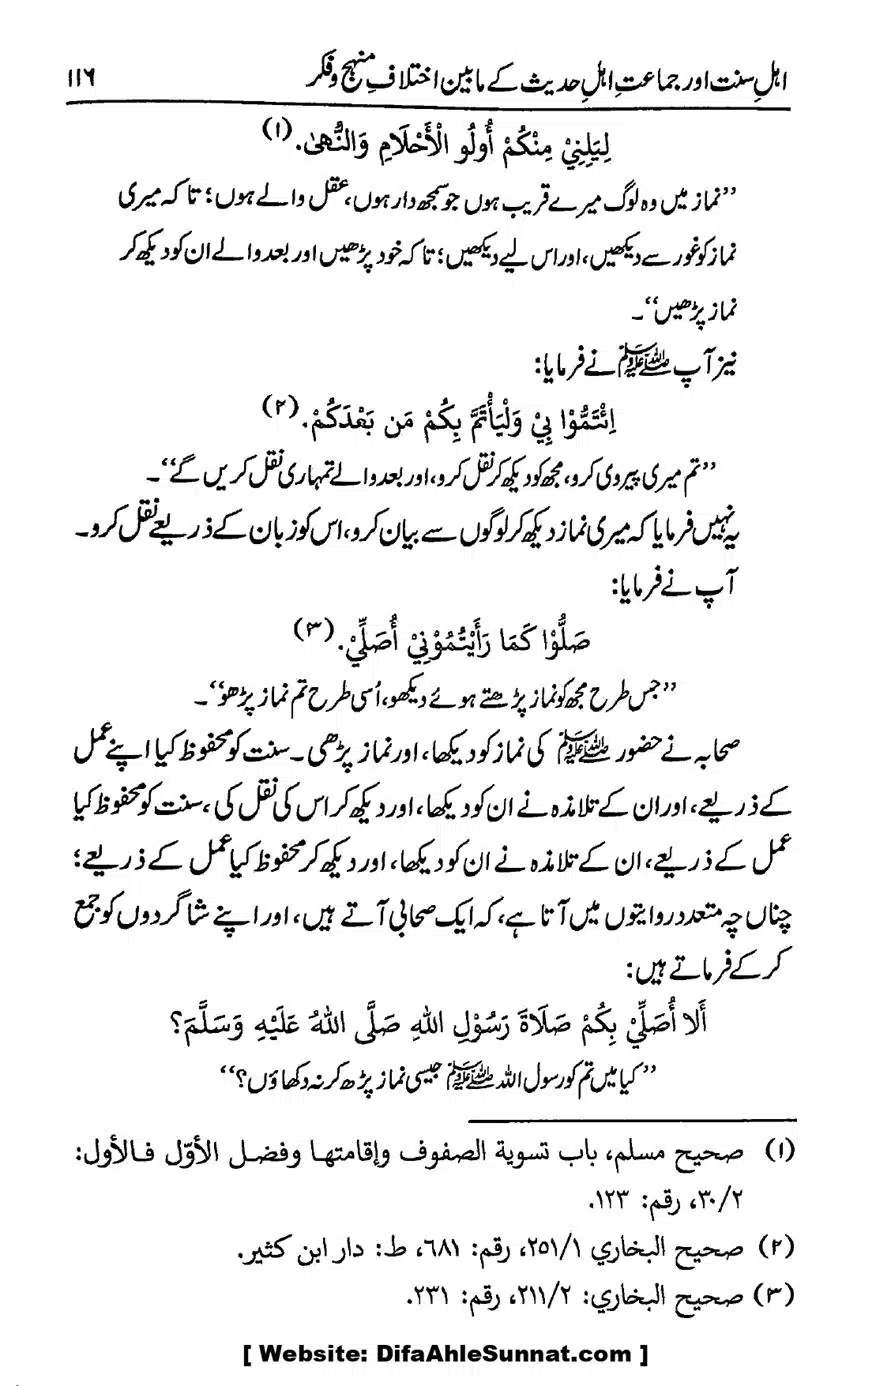 اہلِ سنت اور جماعتِ اہلِ حدیث کے مابین اختلافِ منہج وفکر ۱۱۶
لِيَلِنِيْ مِنْكُمْ أُولُو الْأَحْلَامِ وَالنُّهىٰ. (۱)
’’نماز میں وہ لوگ میرے قریب ہوں جو سمجھ دار ہوں، عقل والے ہوں؛ تاکہ میری
نماز کو غور سے دیکھیں، اور اس لیے دیکھیں؛ تاکہ خود پڑھیں اور بعد والے ان کو دیکھ کر
نماز پڑھیں‘‘۔
نیز آپ ﷺ نے فرمایا:
اِئْتَمُّوْا بِيْ وَلْيَأْتَمَّ بِكُمْ مَن بَعْدَكُمْ. (۲)
’’تم میری پیروی کرو، مجھ کو دیکھ کر نقل کرو، اور بعد والے تمہاری نقل کریں گے‘‘۔
یہ نہیں فرمایا کہ میری نماز دیکھ کر لوگوں سے بیان کرو، اس کو زبان کے ذریعے نقل کرو۔
آپ نے فرمایا:
صَلُّوْا كَمَا رَأَيْتُمُوْنِيْ أُصَلِّيْ. (۳)
’’جس طرح مجھ کو نماز پڑھتے ہوئے دیکھو، اُسی طرح تم نماز پڑھو‘‘۔
صحابہ نے حضور ﷺ کی نماز کو دیکھا، اور نماز پڑھی۔ سنت کو محفوظ کیا اپنے عمل
کے ذریعے، اور ان کے تلامذہ نے ان کو دیکھا، اور دیکھ کر اس کی نقل کی، سنت کو محفوظ کیا
عمل کے ذریعے، ان کے تلامذہ نے ان کو دیکھا، اور دیکھ کر محفوظ کیا عمل کے ذریعے؛
چناں چہ متعدد روایتوں میں آتا ہے، کہ ایک صحابی آتے ہیں، اور اپنے شاگردوں کو جمع
کرکے فرماتے ہیں:
أَلا أُصَلِّيْ بِكُمْ صَلَاةَ رَسُوْلِ اللهِ صَلَّى اللهُ عَلَيْهِ وَسَلَّمَ؟
’’کیا میں تم کو رسول اللہ ﷺ جیسی نماز پڑھ کر نہ دکھاؤں؟‘‘
(۱) صحيح مسلم، باب تسوية الصفوف وإقامتها وفضل الأوّل فالأول:
۳۰/۲، رقم: ۱۲۳.
(۲) صحيح البخاري ۲۵۱/۱، رقم: ٦٨١، ط: دار ابن كثير.
(۳) صحيح البخاري: ۲۱۱/۲، رقم: ۲۳۱.
[ Website: DifaAhleSunnat.com ]